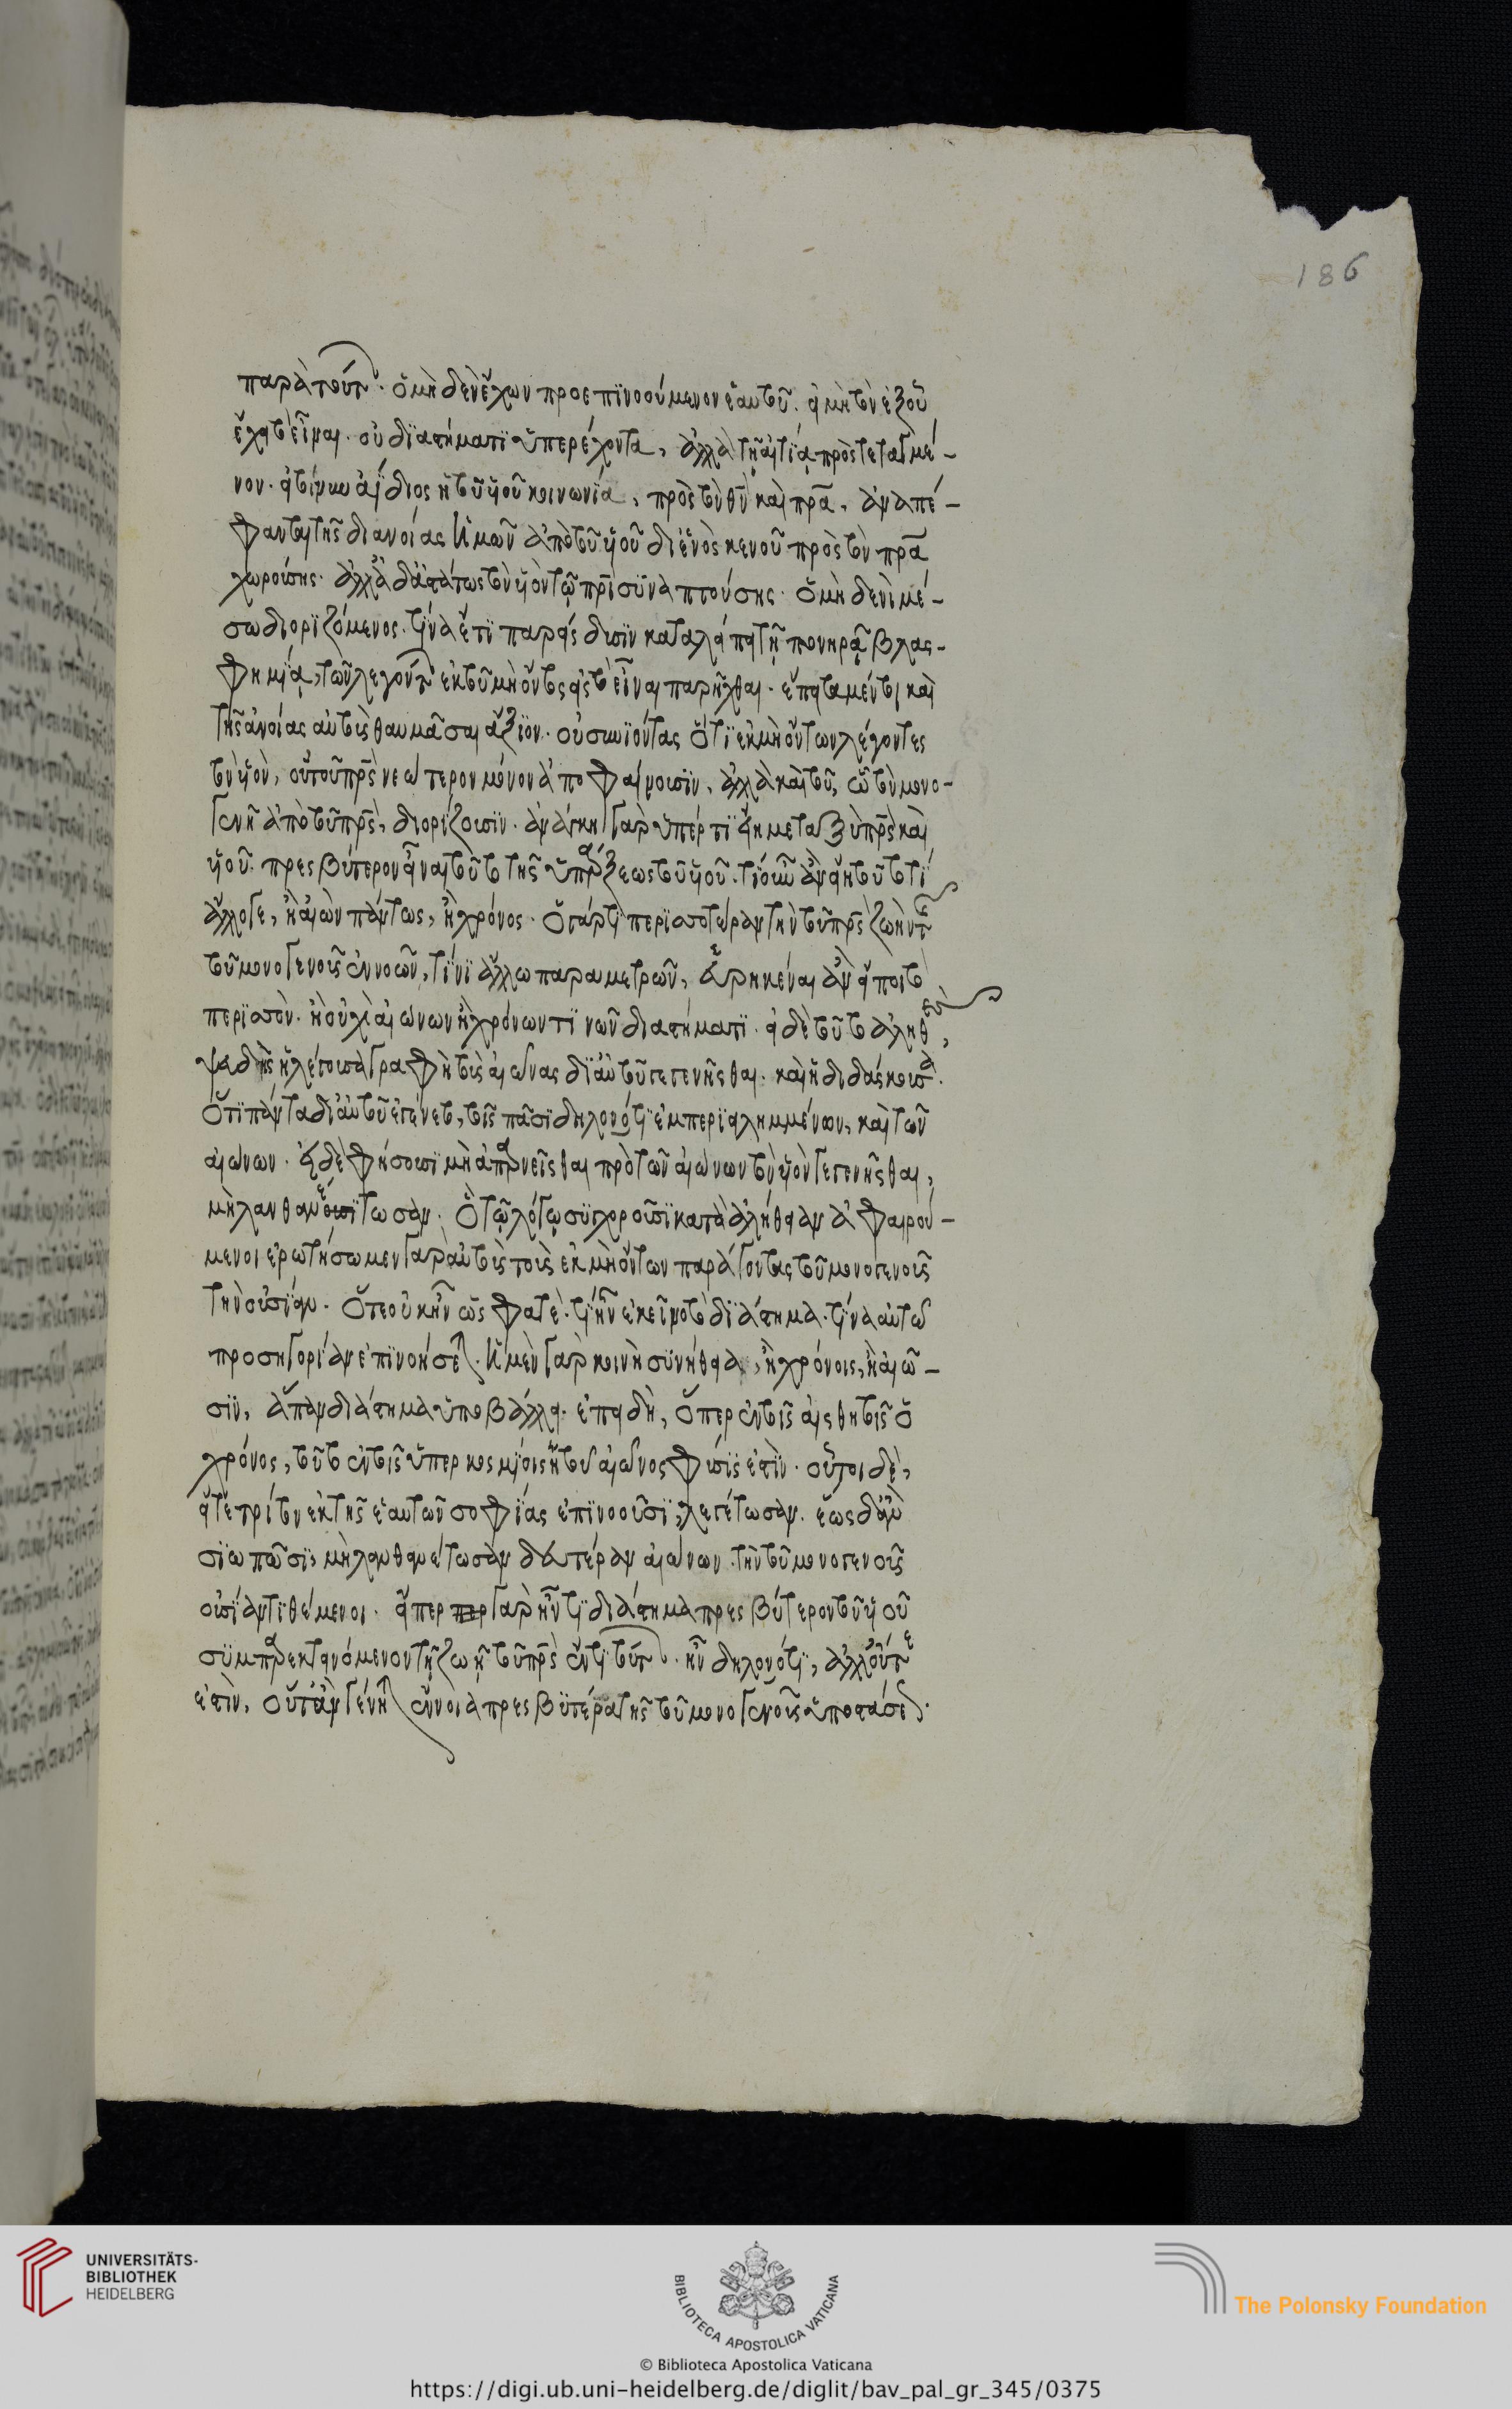 186
παρὰ τούτ· ὁ μηδὲν ἔχων προεπινοούμενον ἑαυτοῦ. εἰ μὴ τὸν ἐξ οὗ
ἔχει τὸ εἶναι. οὐ διαστήματι ὑπερέχοντα, ἀλλὰ τῇ αἰτίᾳ προστεταγμέ-
νον. εἰ τοίνυν ἀΐδιος ἡ τοῦ υἱοῦ κοινωνία, πρὸς τὸν θν καὶ πρα, ἀναπέ-
φανται τῆς διανοίας ἡμῶν ἀπὸ τοῦ υἱοῦ δι' ἑνὸς κενοῦ πρὸς τὸν πρα
χωρούσης. ἀλλ' ἀδιαστάτως τὸν υἱὸν τῷ πρι συναπτούσης. ὁ μηδενὶ μέ-
σω διοριζόμενος. τίνα ἔτι πάροδισιν καταλείπει τῇ πονηρᾷ βλασ-
φημίᾳ, τῶν λεγούντ ἐκ τοῦ μὴ ὄντος εἰς τὸ εἶναι παρῆχθαι. ἔπειτα μέντοι καὶ
τῆς ἀνοίας αὐτοὺς θαυμάσαι ἄξιον. οὐ συνιόντας ὅτι ἐκ μὴ ὄντων λέγοντες
τὸν υἱὸν, οὐ τοῦ πρς νεώτερον μόνον ἀποφαίνουσιν, ἀλλὰ καὶ τοῦ, ᾧ τὸν μονο-
γενῆ ἀπὸ τοῦ πρς, διορίζουσιν. ἀνάγκη γὰρ ὑπέρ τι ἢ μεταξὺ πρς καὶ
υἱοῦ. πρεσβύτερον εἶναι τοῦτο τῆς ὑπάρξεως τοῦ υἱοῦ. τί οὖν ἂν εἴη τοῦτο τί
ἄλλο γε, ἢ αἰὼν πάντως, ἢ χρόνος. ὁ γάρ τι περισσοτέραν τὴν τοῦ πρς ζωὴν τ
τοῦ μονογενοῦς ἐννοῶν, τίνι ἄλλω παραμετρῶν, εὑρηκέναι ἂν εἴποι τὸ
περισσὸν. ἢ οὐχὶ αἰώνων ἢ χρόνων τινῶν διαστήματι. εἰ δὲ τοῦτο ἀληθὲς,
ψευδὴς ἡ λέγουσα γραφὴ τοὺς αἰῶνας δι' αὐτοῦ γεγενῆσθαι. καὶ ἡ διδάσκουσα.
ὅτι πάντα δι' αὐτοῦ ἐγένετο, τοῖς πᾶσι δηλονότι ἐμπεριειλημμένων, καὶ τῶν
αἰώνων. εἰ δὲ φήσουσι μὴ ἀπαρνεῖσθαι πρὸ τῶν αἰώνων τὸν υἱὸν γεγενῆσθαι,
μὴ λανθανέτωσαν. ὃ τῷ λόγῳ συγχωροῦσι κατὰ ἀλήθειαν ἀφαιρού-
μενοι ἐρωτήσωμεν γὰρ αὐτοὺς τοὺς ἐκ μὴ ὄντων παράγοντας τοῦ μονογενοῦς
τὴν οὐσίαν. ὅτε οὐκ ἦν ὥς φατὲ. τί ἦν ἐκεῖνο τὸ διάστημα. τίνα αὐτῶ
προσηγορίαν ἐπινοήσετ. ἡ μὲν γὰρ κοινὴ συνήθεια, ἢ χρόνοις, ἢ αἰῶ-
σιν, ἅπαν διάστημα ὑποβάλλει. ἐπειδὴ, ὅπερ ἐν τοῖς αἰσθητοῖς ὁ
χρόνος, τοῦτο ἐν τοῖς ὑπερκοσμίοις ἡ τοῦ αἰῶνος φύσις ἐστὶν. οὗτοι δὲ,
εἴ τε τρίτον ἐκ τῆς ἑαυτῶν σοφίας ἐπινοοῦσι, λεγέτωσαν. ἕως δ' ἂν
σιωπῶσι, μὴ λανθανέτωσαν δευτέραν αἰώνων. τὴν τοῦ μονογενοῦς
οὐσίαν τιθέμενοι. εἴπερ γὰρ ἦν τι διάστημα πρεσβύτερον τοῦ υἱοῦ
συμπαρεκτεινόμενον τῇ ζωῇ τοῦ πρς ἕν τι τούτ. ἦν δηλονότι, ἄλλο οὔτε
ἐστὶν, οὔτ' ἂν γένητ ἔννοια πρεσβυτέρα τῆς τοῦ μονογενοῦς ὑποστάσε.
UNIVERSITÄTS-
BIBLIOTHEK
HEIDELBERG
BIBLIOTECA APOSTOLICA VATICANA
The Polonsky Foundation
© Biblioteca Apostolica Vaticana
https://digi.ub.uni-heidelberg.de/diglit/bav_pal_gr_345/0375